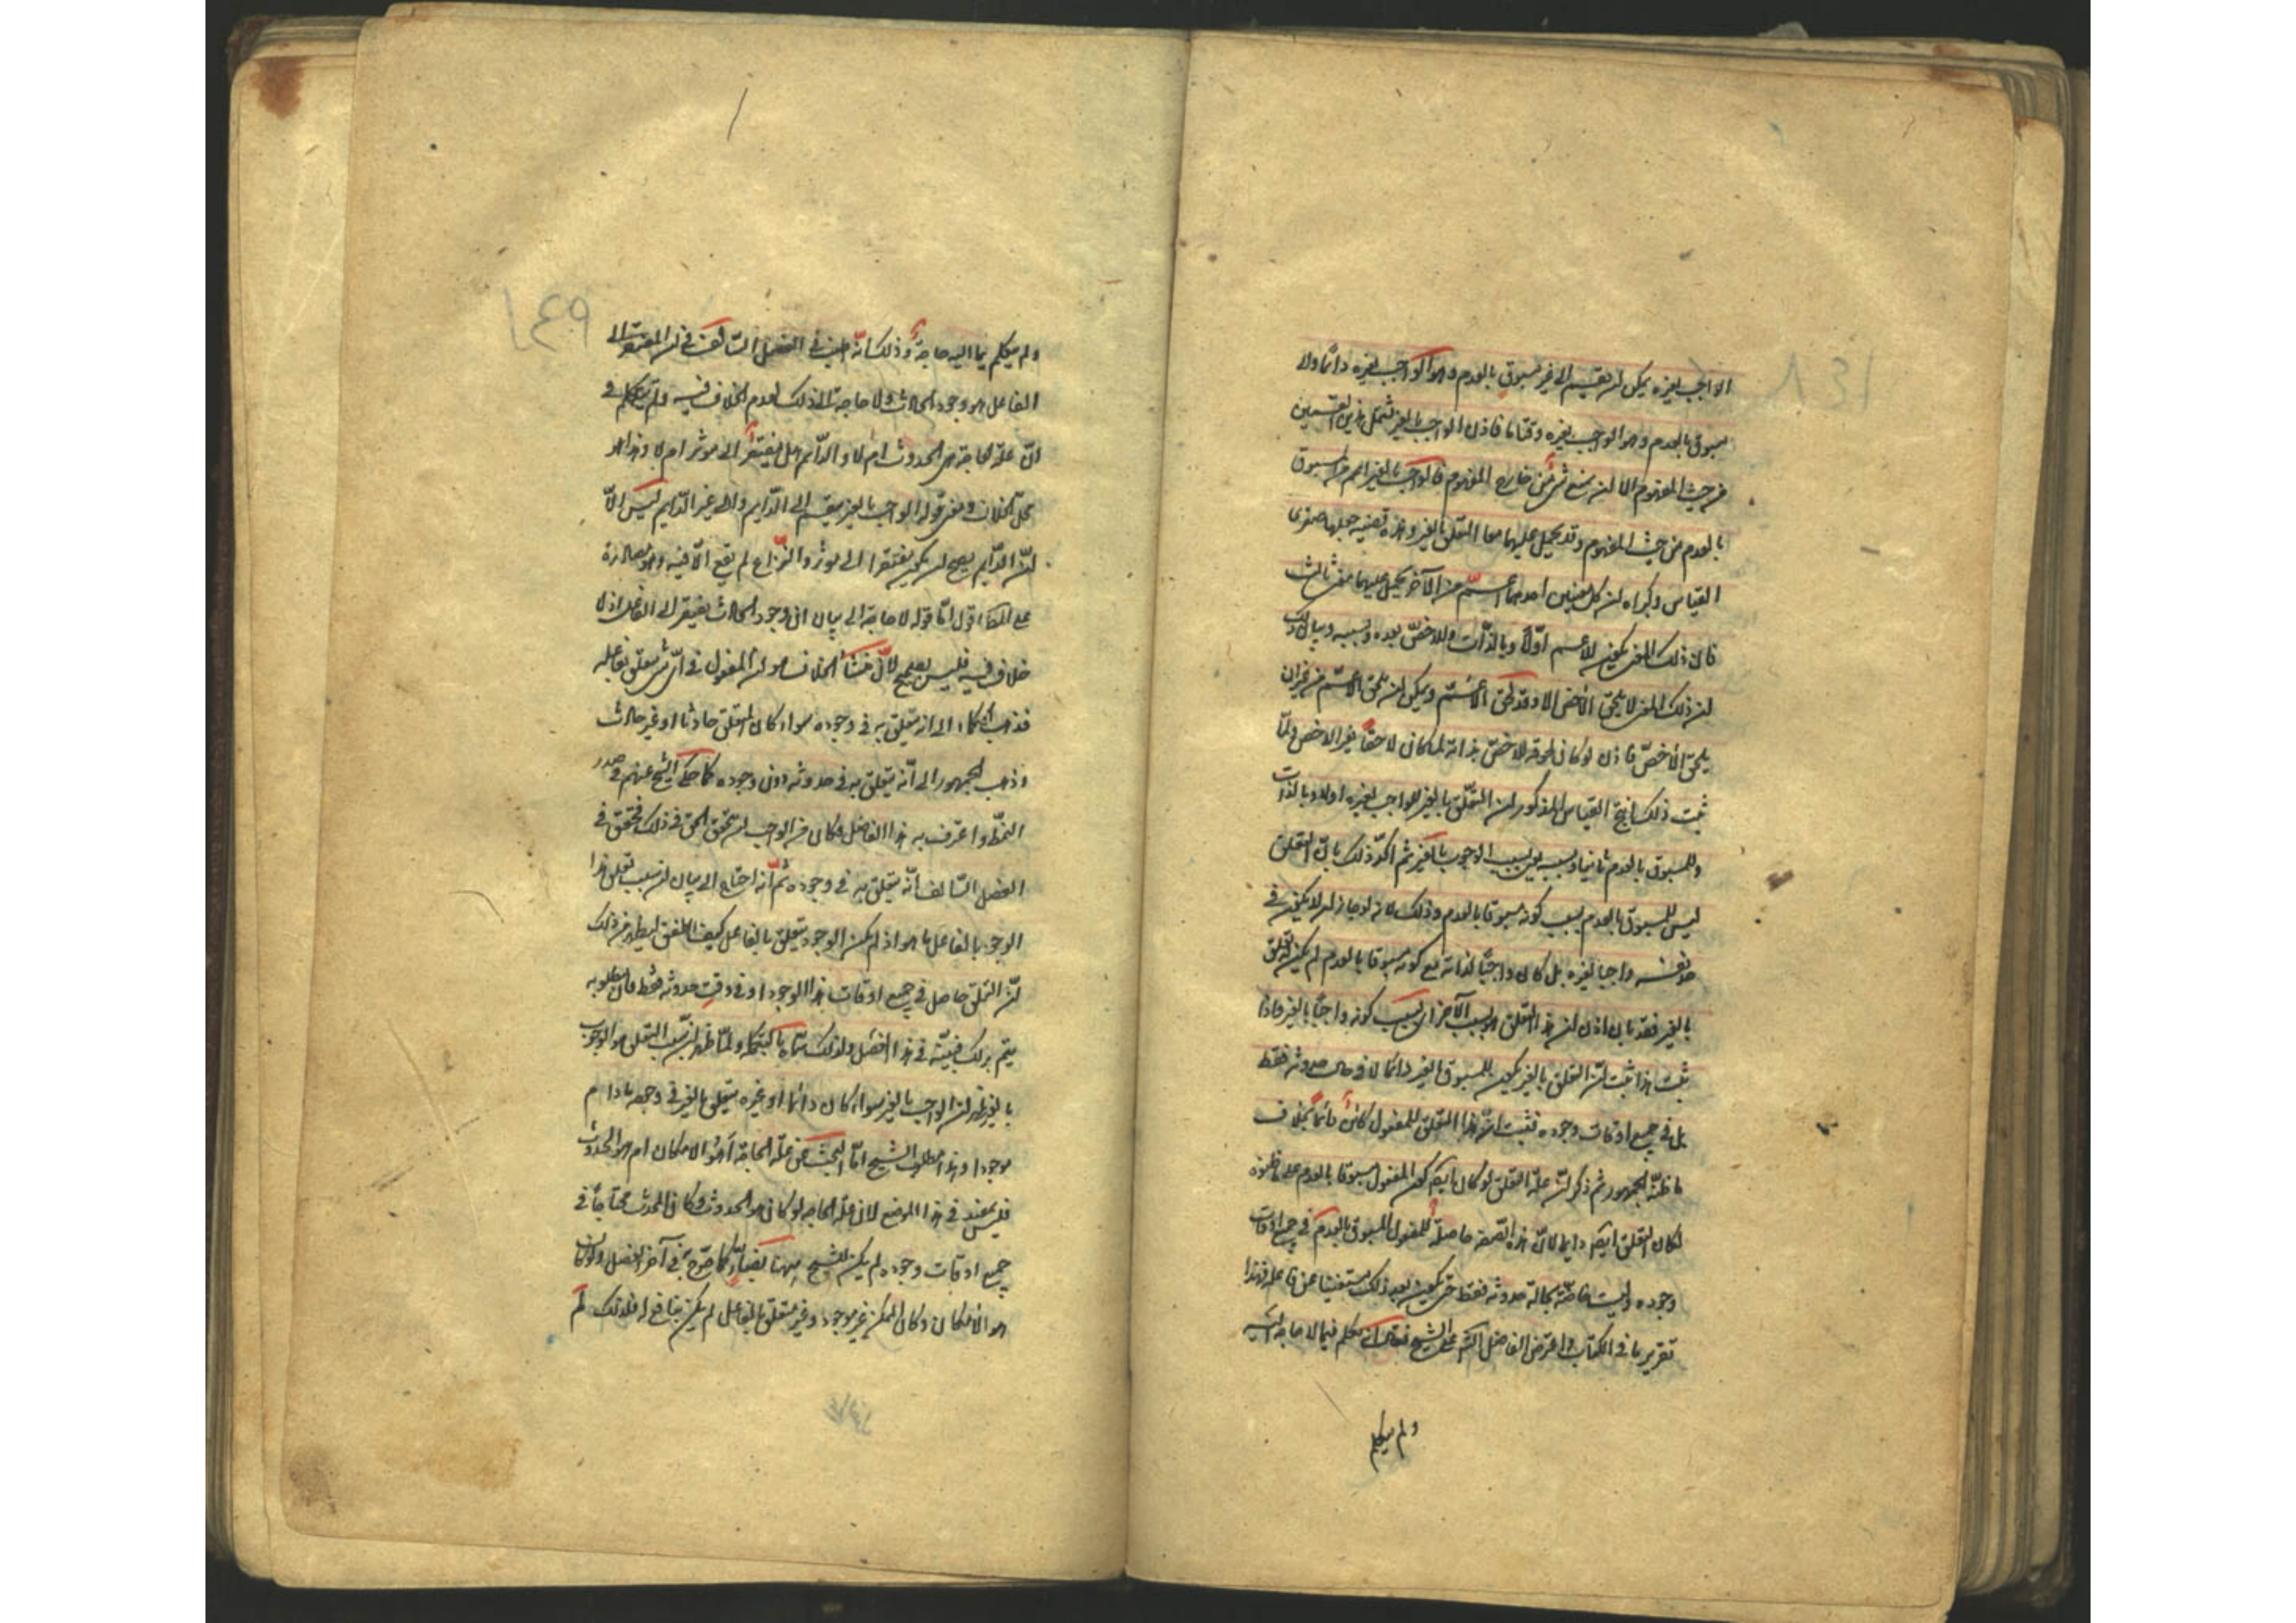 ١٤٨
الواجب بغيره يمكن ان يقسم الى غير مسبوق بالعدم وهو الواجب بغيره دائما ولا
مسبوق بالعدم وهو الواجب بغيره وقتا ما فاذن الواجب بالغير يشمل هذين القسمين
من حيث المفهوم الا ان يمنع شئ من خارج المفهوم فالواجب بالغير اعم من المسبوق
بالعدم من حيث المفهوم وقد يحمل عليهما معا التعلق بالغير وهذه قضية جعلها صغرى
القياس وكبراه ان كل معنيين احدهما اعم من الآخر يحمل عليهما معنى ثالث
فان ذلك المعنى يكون للاعم اولا وبالذات وللاخص بعده وبسببه وبيان ذلك
ان ذلك المعنى لا يلحق الاخص الا وقد لحق الاعم ويمكن ان يلحق الاعم من غير ان
يلحق الاخص فاذن لو كان لحوقه للاخص بذاته لما كان لاحقا بغير الاخص ولما
ثبت ذلك انتج القياس المذكور ان التعلق بالغير للواجب بغيره اولا وبالذات
وللمسبوق بالعدم ثانيا وبسببه بل بسبب الوجوب بالغير ثم اكد ذلك بان التعلق
ليس للمسبوق بالعدم بسبب كونه مسبوقا بالعدم وذلك لانه لو جاز ان لا يكون في
حد نفسه واجبا بغيره بل كان واجبا لذاته مع كونه مسبوقا بالعدم لم يكن له تعلق
بالغير فقد بان اذن ان هذا التعلق هو بسبب الآخر اى بسبب كونه واجبا بالغير فاذا
ثبت هذا ثبت ان التعلق بالغير يكون للمسبوق بالغير دائما لا في حال حدوثه فقط
بل في جميع اوقات وجوده فثبت ان هذا التعلق للمفعول كائن دائما بخلاف
ما ظنه الجمهور ثم ذكر ان علة التعلق لو كان ايضا كون المفعول مسبوقا بالعدم على ما ظنوه
لكان التعلق ايضا دايما لان هذه الصفة حاصلة للمفعول المسبوق بالعدم في جميع اوقات
وجوده وليست خاصة بحالة حدوثه فقط حتى يكون بعد ذلك مستغنيا عن فاعله فهذا
تقرير ما في الكتاب واعترض الفاضل الش على الشيخ فقال انه تكلم فيما لا حاجة اليه
ولم يتكلم
١٤٩
ولم يتكلم فيما اليه حاجة وذلك انه بين في الفصل السالف في ان المفتقر الى
الفاعل هو وجود الحادث ولا حاجة الى ذلك لعدم الخلاف فيه ولم يتكلم في
ان علة الحاجة هي الحدوث ام لا والدائم هل يفتقر الى موثر ام لا وهذا هو
محل الخلاف ومعنى قوله الواجب بالغير ينقسم الى الدايم والى غير الدايم ليس الا
ان الدايم يصح ان يكون مفتقرا الى موثر والنزاع لم يقع الا فيه وهو مصادرة
على المط اقول اما قوله لا حاجة الى بيان ان وجود الحادث يفتقر الى الفاعل اذ لا
خلاف فيه فليس بصحيح لان منشأ الخلاف هو ان المفعول في اى شئ يتعلق بفاعله
فذهب الحكماء الى انه يتعلق به في وجوده سواء كان المتعلق حادثا او غير حادث
وذهب الجمهور الى انه يتعلق به في حدوثه دون وجوده كما حكى الشيخ عنهم في صدر
النمط واعترف به هذا الفاضل وكان من الواجب ان يحقق الحق في ذلك فحقق في
الفصل السالف انه يتعلق به في وجوده ثم انه احتاج الى بيان ان سبب تعلق هذا
الوجود بالفاعل ما هو اذ لم يكن الوجود يتعلق بالفاعل كيف اتفق ليظهر من ذلك
ان التعلق حاصل في جميع اوقات هذا الوجود او في وقت حدوثه فقط فان مطلوبه
يتم بذلك فبينه في هذا الفصل ولذلك سماه بالتكملة ولما ظهر ان سبب التعلق هو الوجوب
بالغير ظهر ان الواجب بالغير سواء كان دائما او غيره متعلق بالغير في وجوده ما دام
موجودا وهذا مطلوب الشيخ اما البحث عن علة الحاجة أهو الامكان ام هو الحدوث
فليس بمفيد في هذا الموضع لان علة الحاجة لو كان هو الحدوث وكان المحدث محتاجا في
جميع اوقات وجوده لم يكن للشيخ ههنا بضار كما صرح به في آخر الفصل ولو كان
هو الامكان وكان الممكن غير موجود وغير متعلق بالفاعل لم يكن بنافع له فلذلك لم